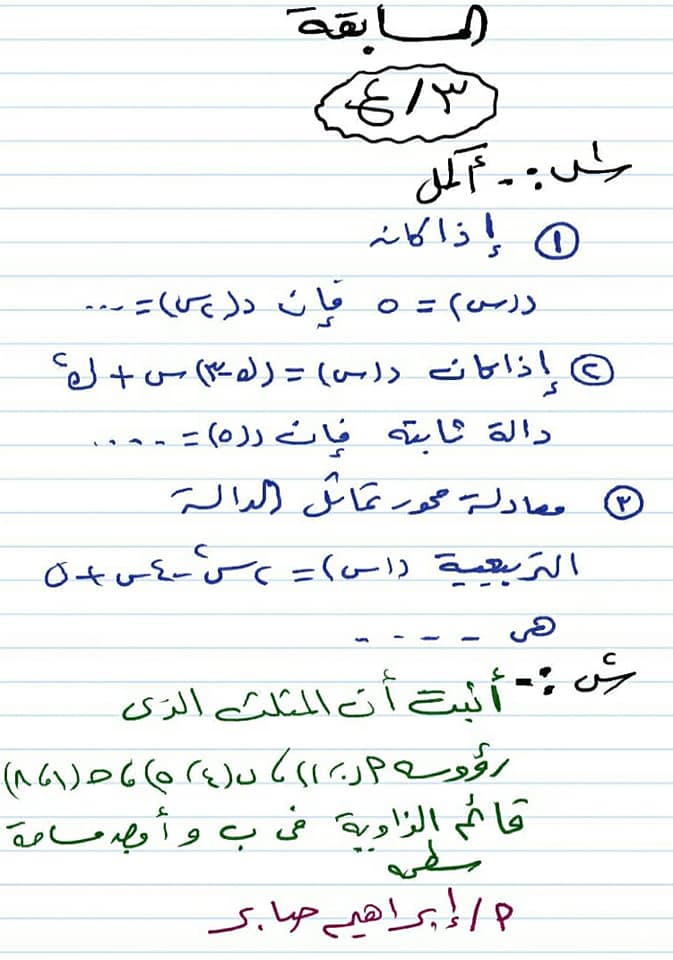 المسابقة
٣/ع
س١:- أكمل
① إذا كان
د(س) = ٥ فإن د(٢س) = ...
② إذا كانت د(س) = (ك-٣)س + ك²
دالة ثابتة فإن د(٥) = ....
③ معادلة محور تماثل الدالة
التربيعية د(س) = ٢س² - ٤س + ٥
هى ----
س٢:- أثبت أن المثلث الذى
رؤوسه أ(٠،١) ، ب(٤،٥) ، حـ(١،٨)
قائم الزاوية فى ب وأوجد مساحة
سطحه
أ/إبراهيم صابر